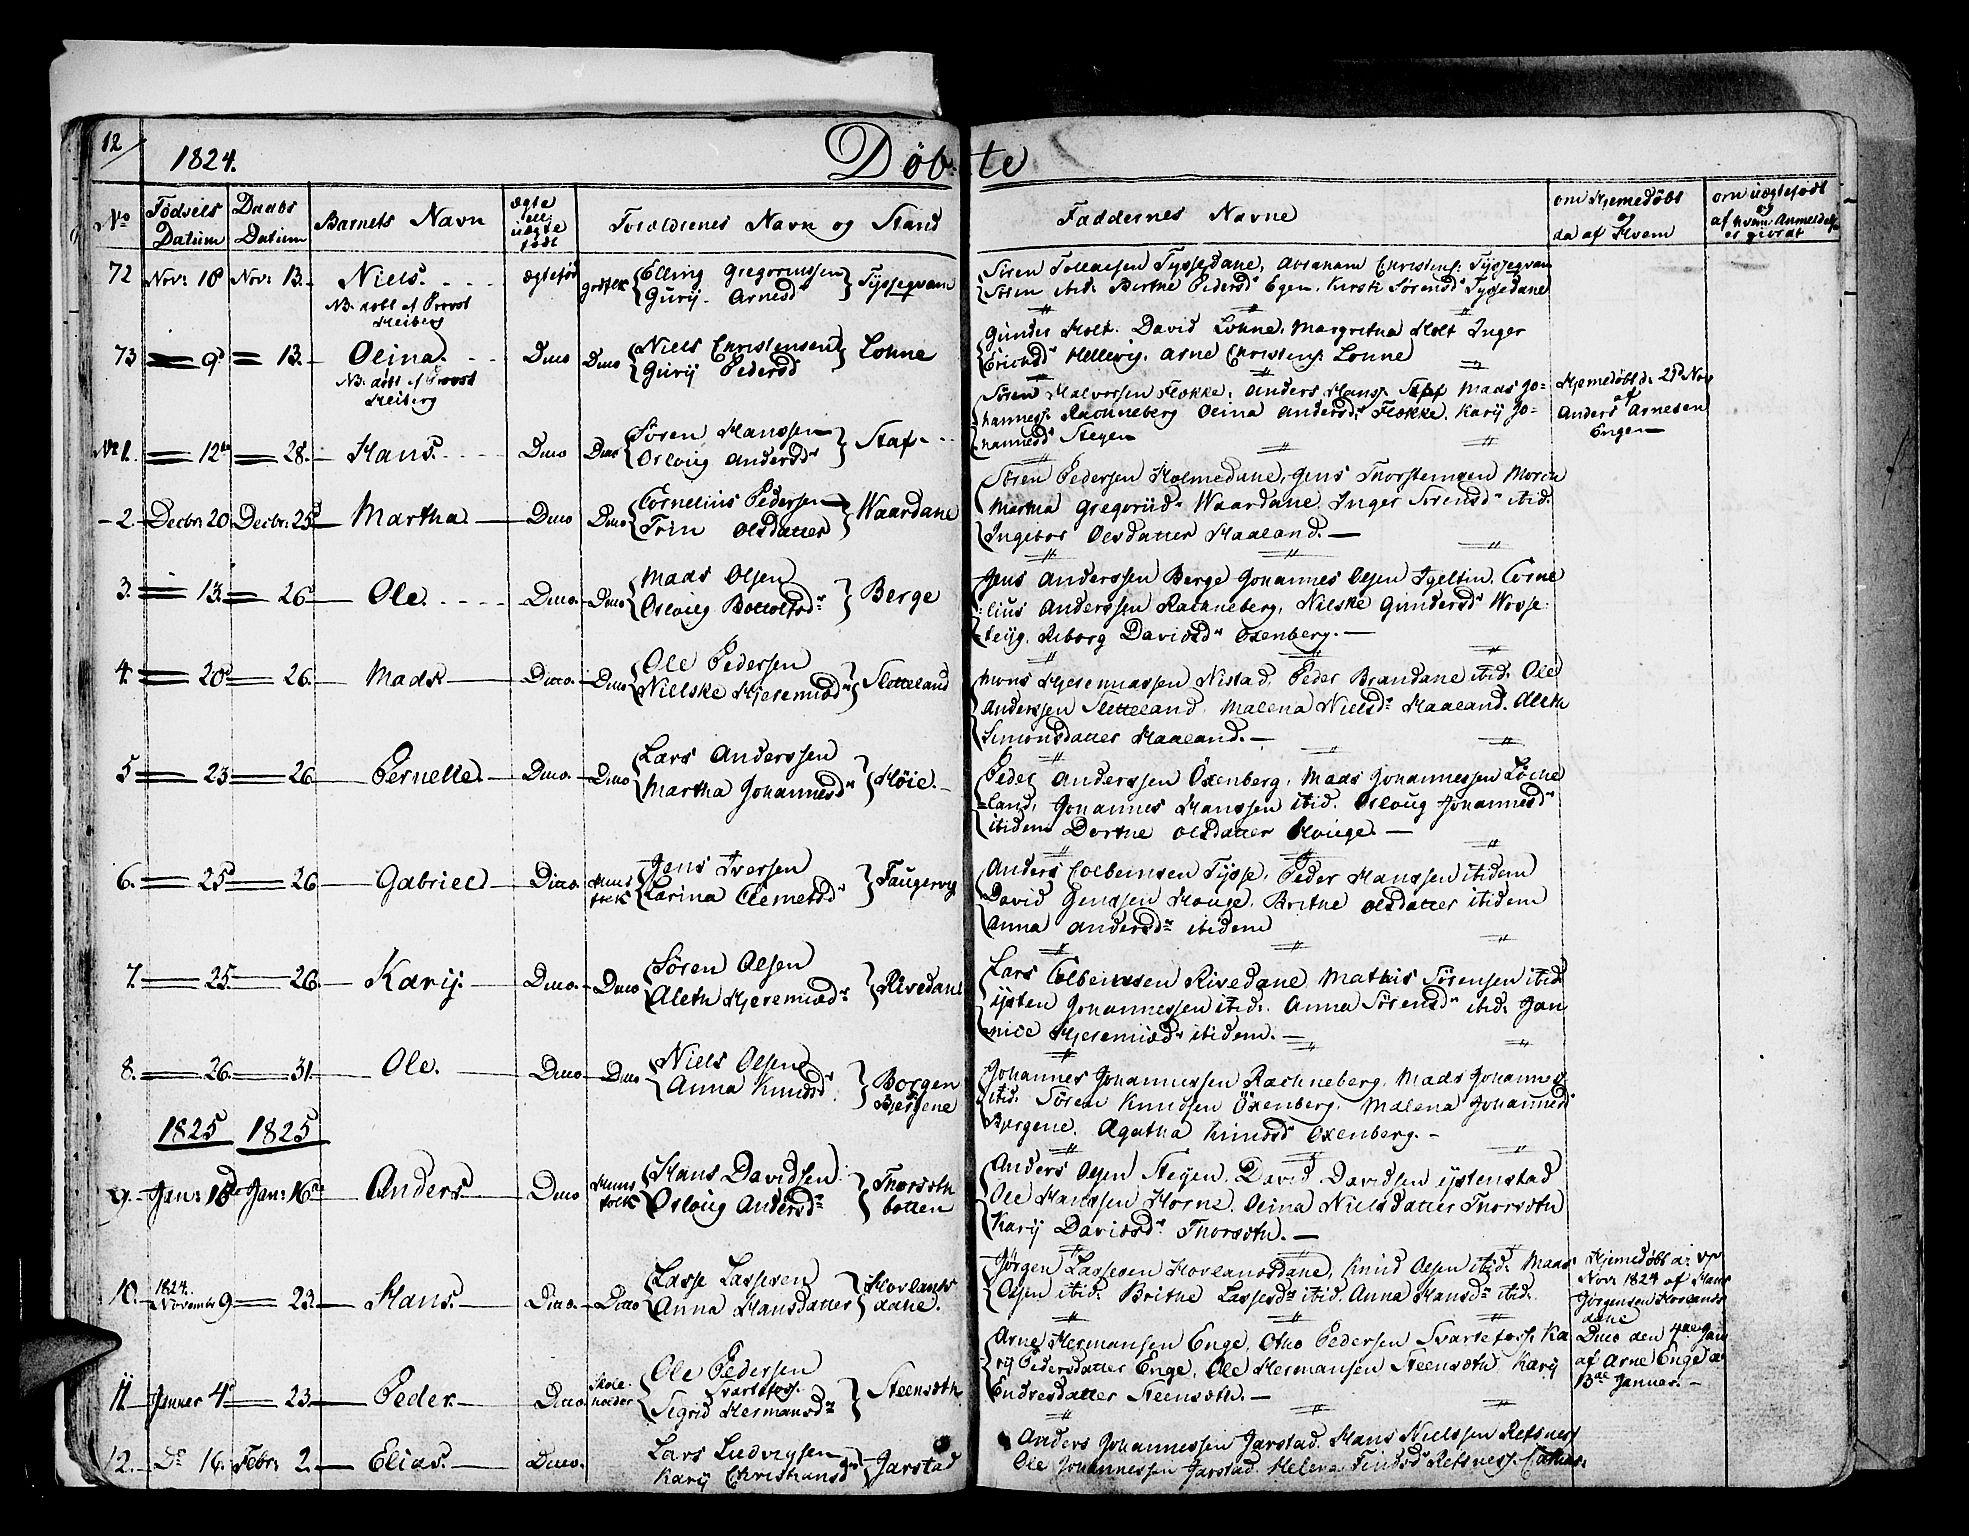 12
1824.
Døbte
No
Fødsels Datum
Daabs Datum
Barnets Navn
ægte ell. uægte født
Forældrenes Navn og Stand
Faddernes Navne
om Hjemedøbt og da af Hvem
om uægtefødt og af hvem Anmeldelse er giordt
72 Nov: 10 Nov: 13. Niels. ægtefød
NB. døbt af Provst Heiberg
Elling Gregoriussen
Gurij Arnesdr
Tyssegvam
Søren Tollaefsen Tyssedane, Abraham Christens: Tyssegvam
Søren ibid. Birthe Pedersdr Egen. Kirsti Sørensdr Tyssedane
73 9d 13. Olina. Ditto Ditto
NB. døbt af Provst Heiberg
Niels Christensen
Gurij Pedersd
Lohne
Gunder Holt. David Lohne, Margretha Holt Inger
Erichsdr Hellevig. Arne Christens: Lohne
No 1. 12te 28. Hans. Ditto Ditto
Søren Hanssen
Oslaug Andersdr
Staf
Søren Halvorsen Flokke, Anders Hans: Staf Mads Jo-
hannes: Rachneberg Olina Andersdr Flokke. Karij Jo-
hannesdr Steyen
Hjemedøbt d: 21d Nov af Anders Arnesen Engen
2. Decbr: 20 Decbr: 25d Martha Ditto Ditto
Cornelius Pedersen
Trin Olsdatter
Waardane
Søren Pedersen Holmedane, Jens Thorstensen
Martha Gregoriid: Waardane Inger Sørensdr ibid.
Ingebor Olsdatter Haaland.
3. 13. 26 Ole. Ditto. Ditto
Mads Olsen
Oslaug Bottolfsdr
Berge
Jens Anderssen Berge Johannes Olsen Tyeltin, Corne
lius Anderssen Rachneberg, Nilske Gundersdr Wosse
teijg, Riborg Davidsdr Oxenberg.
4. 20d 26. Mads Ditto. Ditto
Ole Pedersen
Nielske Hjeremiædr
Sletteland
Mons Hjeremiassen Nistad, Peder Brandane ibid. Ole
Anderssen Sletteland. Malena Nielsdr Haaland. Aleth
Simonsdatter Haaland.
5 23 26 Pernelle. Ditto. Ditto
Lars Anderssen
Martha Johannesdr
Høie.
Peder Anderssen Oxenberg, Mads Johannessen Løche
land, Johannes Hanssen ibid. Oslaug Johannesdr
ibidem Dorthe Olsdatter Houge.
6. 25d 26 Gabriel Ditto. Huusfolk
Jens Iversen
Carina Clemetsdr
Taugevig
Anders Colbeinsen Tysse, Peder Hanssen ibidem
David Jenssen Houge, Brithe Olsdatter ibidem
Anna Andersdr ibidem
7. 25 26. Karij. Ditto. Ditto
Søren Olsen
Aleth Hjeremiædr
Rivedane
Lars Colbeinssen Rivedane Mathis Sørensen ibid
Eijsten Johannessen ibid. Anna Sørensdr ibid. Jan
nice Hjeremiædr ibidem.
8. 26. 31. Ole. Ditto Ditto
Niels Olsen
Anna Knudsd
Borgen
Bjergene
Johannes Johannessen Rachneberg. Mads Johannes
ibid. Søren Knudsen Oxenberg, Malena Johannesd
Bjergene, Agatha Oxenberg.
1825 1825
9. Jan: 10d Jan: 16d Anders Ditto Huusfolk
Hans Davidsen
Oslaug Andersdr
Thorsothbotten
Anders Olsen Steyen, David Davidsen Eijstenstad
Ole Hanssen Horne, Olina Nielsdatter Thorsoth
Karij Davidsdr Thorsoth.
10. 1824. November 9 23. Hans. Ditto. Ditto
Lasse Lassesen
Anna Hansdatter
Hovlandsdane.
Jørgen Lassesen Hovlandsdane, Knud Olsen ibid. Mads
Olsen ibid. Brithe Lassesdr ibid. Anna Hansdr ibid.
Hjemedøbt d: Nov: 1824 af Hans Jørgensen Hovlandsdane
11. Januer 4d 23. Peder. Ditto. Skoleholder
Ole Pedersen
Svartefoss.
Sigrid Hermansdr
Steensoth
Arne Hermansen Enge, Otho Pedersen Svartefoss. Ka
rij Pedersdatter Enge, Ole Hermansen Steensoth, Karij
Endresdatter Steensoth.
Ditto den 4de Jan af Arne Enge d 13de Januer.
12. Do 16. Febr: 2. Elias. Ditto.
Lars Ludvigsen
Karij Christiansdr
Jarstad
Anders Johannessen Jarstad. Hans Nielssen Retsnes
Ole Johannessen Jarstad. Helena Findsdr Retsnes.